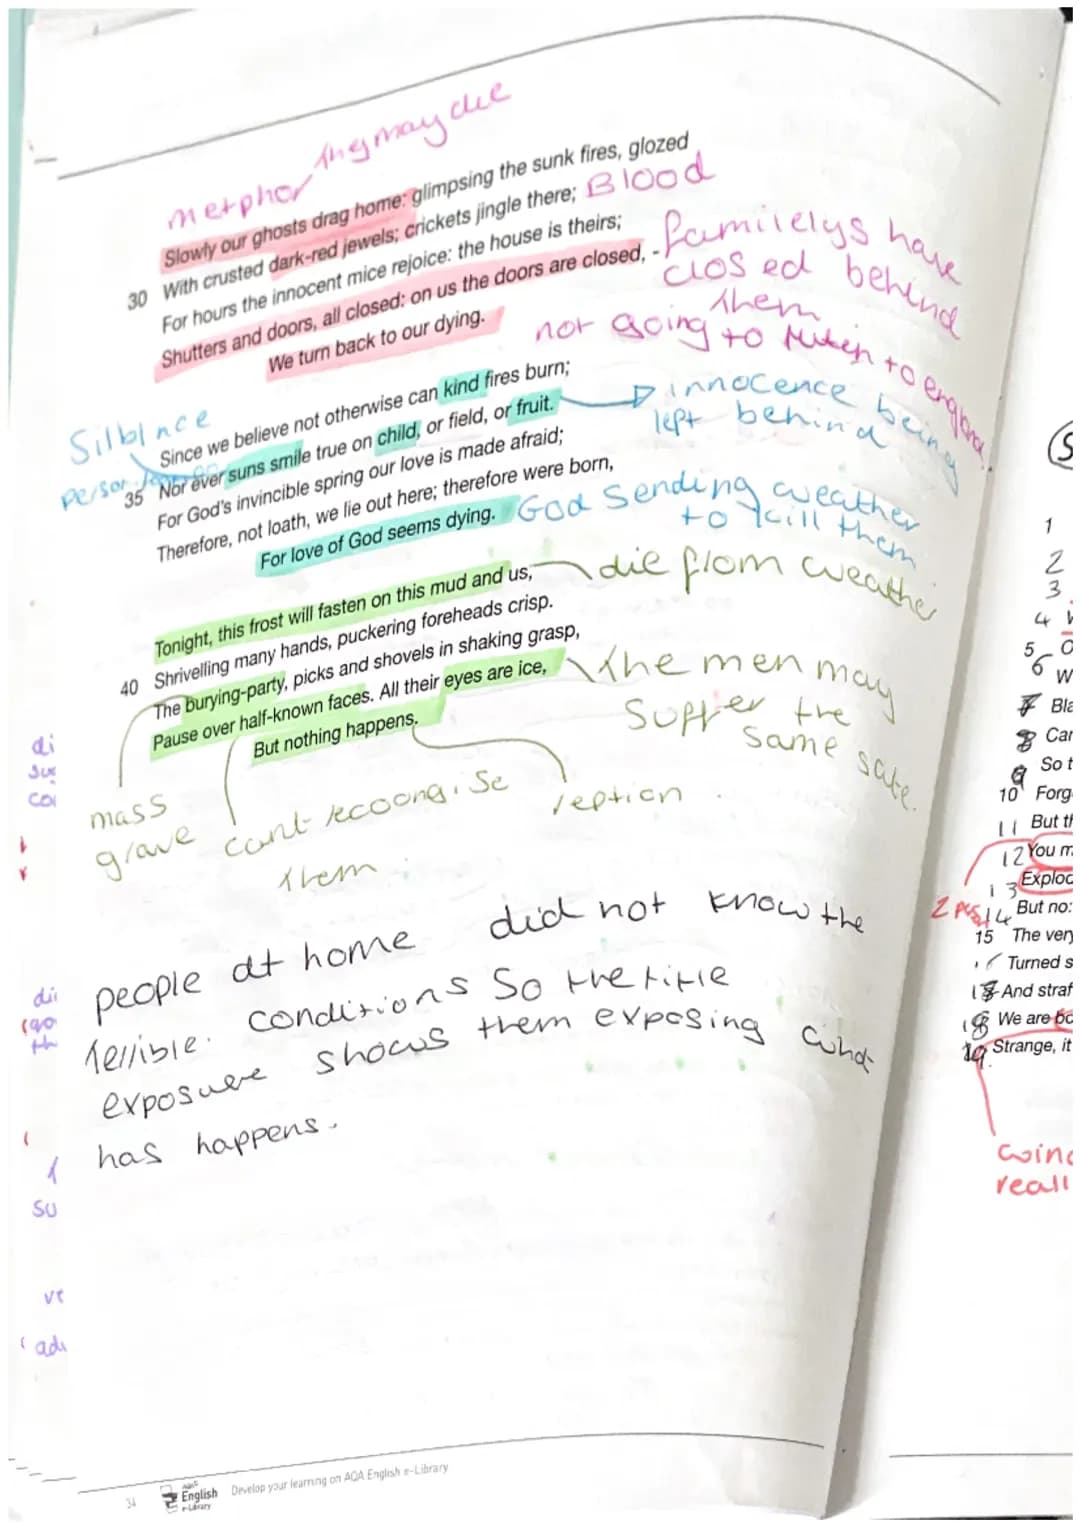 They may die
metphor
Slowly our ghosts drag home: glimpsing the sunk fires, glozed
30 With crusted dark-red jewels; crickets jingle there; Blood
For hours the innocent mice rejoice: the house is theirs;
Shutters and doors, all closed: on us the doors are closed, -
We turn back to our dying.
familelys have
closed behind
them
not going to
to england
Since we believe not otherwise can kind fires burn;
35 Nor ever suns smile true on child, or field, or fruit.
For God's invincible spring our love is made afraid;
Therefore, not loath, we lie out here; therefore were born,
For love of God seems dying.
Silblnce
innocence being
left behind
God sending weather
to kill them
Tonight, this frost will fasten on this mud and us,
40 Shrivelling many hands, puckering foreheads crisp.
The burying-party, picks and shovels in shaking grasp,
Pause over half-known faces. All their eyes are ice,
But nothing happens.
die flom weather
The men may
suffer the
same sate.
mass
grave
cant recoongise
them
reption
people at home did not know the
terrible conditions so the title
exposuere shows them exposing what
has happens.
di
sue
coi
dii
(go
th
su
ve
adi
34
AQA
English
e-Library
Develop your learning on AQA English e-Library
(S
1
2
3
4
5 O
6 W
7 Bla
8 Car
9 So t
10 Forg
11 But th
12 You m
13 Exploc
14 But no:
15 The very
16 Turned s
17 And straf
18 We are bo
19 Strange, it
wind
reall